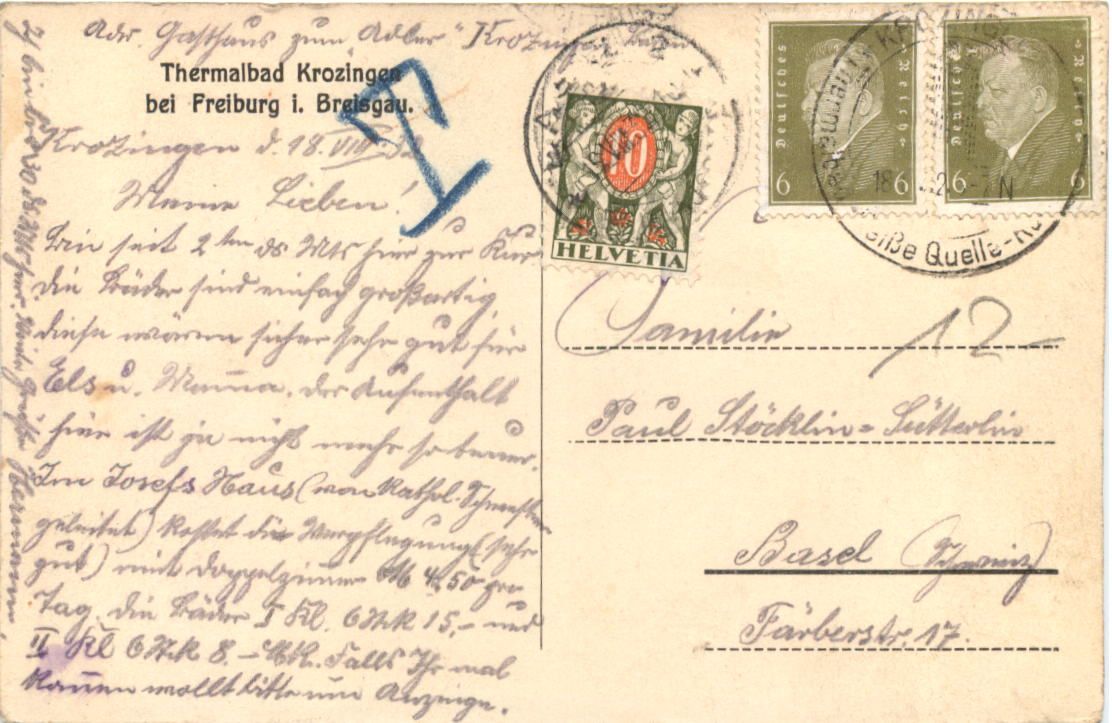 Adr. Gasthaus zum Adler" Krozingen Baden
Thermalbad Krozingen
bei Freiburg i. Breisgau.
Krozingen d. 18. VIII 32
Meine Lieben!
Bin seit 2ten ds Mts hier zur Kur
die Bäder sind einfach großartig
diese wären sicher sehr gut für
Els u. Mamma. der Aufenthalt
hier ist ja nicht mehr so teuer.
Im Josefs Haus (von Kathol. Schwestern
geleitet) kostet die Verpflegung (sehr
gut) mit Doppelzimmer M 4.50 pro
Tag. die Bäder I Kl. 6 Stk 15,- und
II Kl 6 Stk 8.- Mk. Falls Ihr mal
kommen wollt bitte um Anzeige.
bin bis 30 ds Mts hier. Grüße Hermann,
T
10
HELVETIA
Deutsches Reich
6 6
Deutsches Reich
6 6
KROZINGEN
18
Quelle-Ku
12
Familie
Paul Stöcklin-Sütterlin
Basel (Schweiz)
Färberstr. 17.